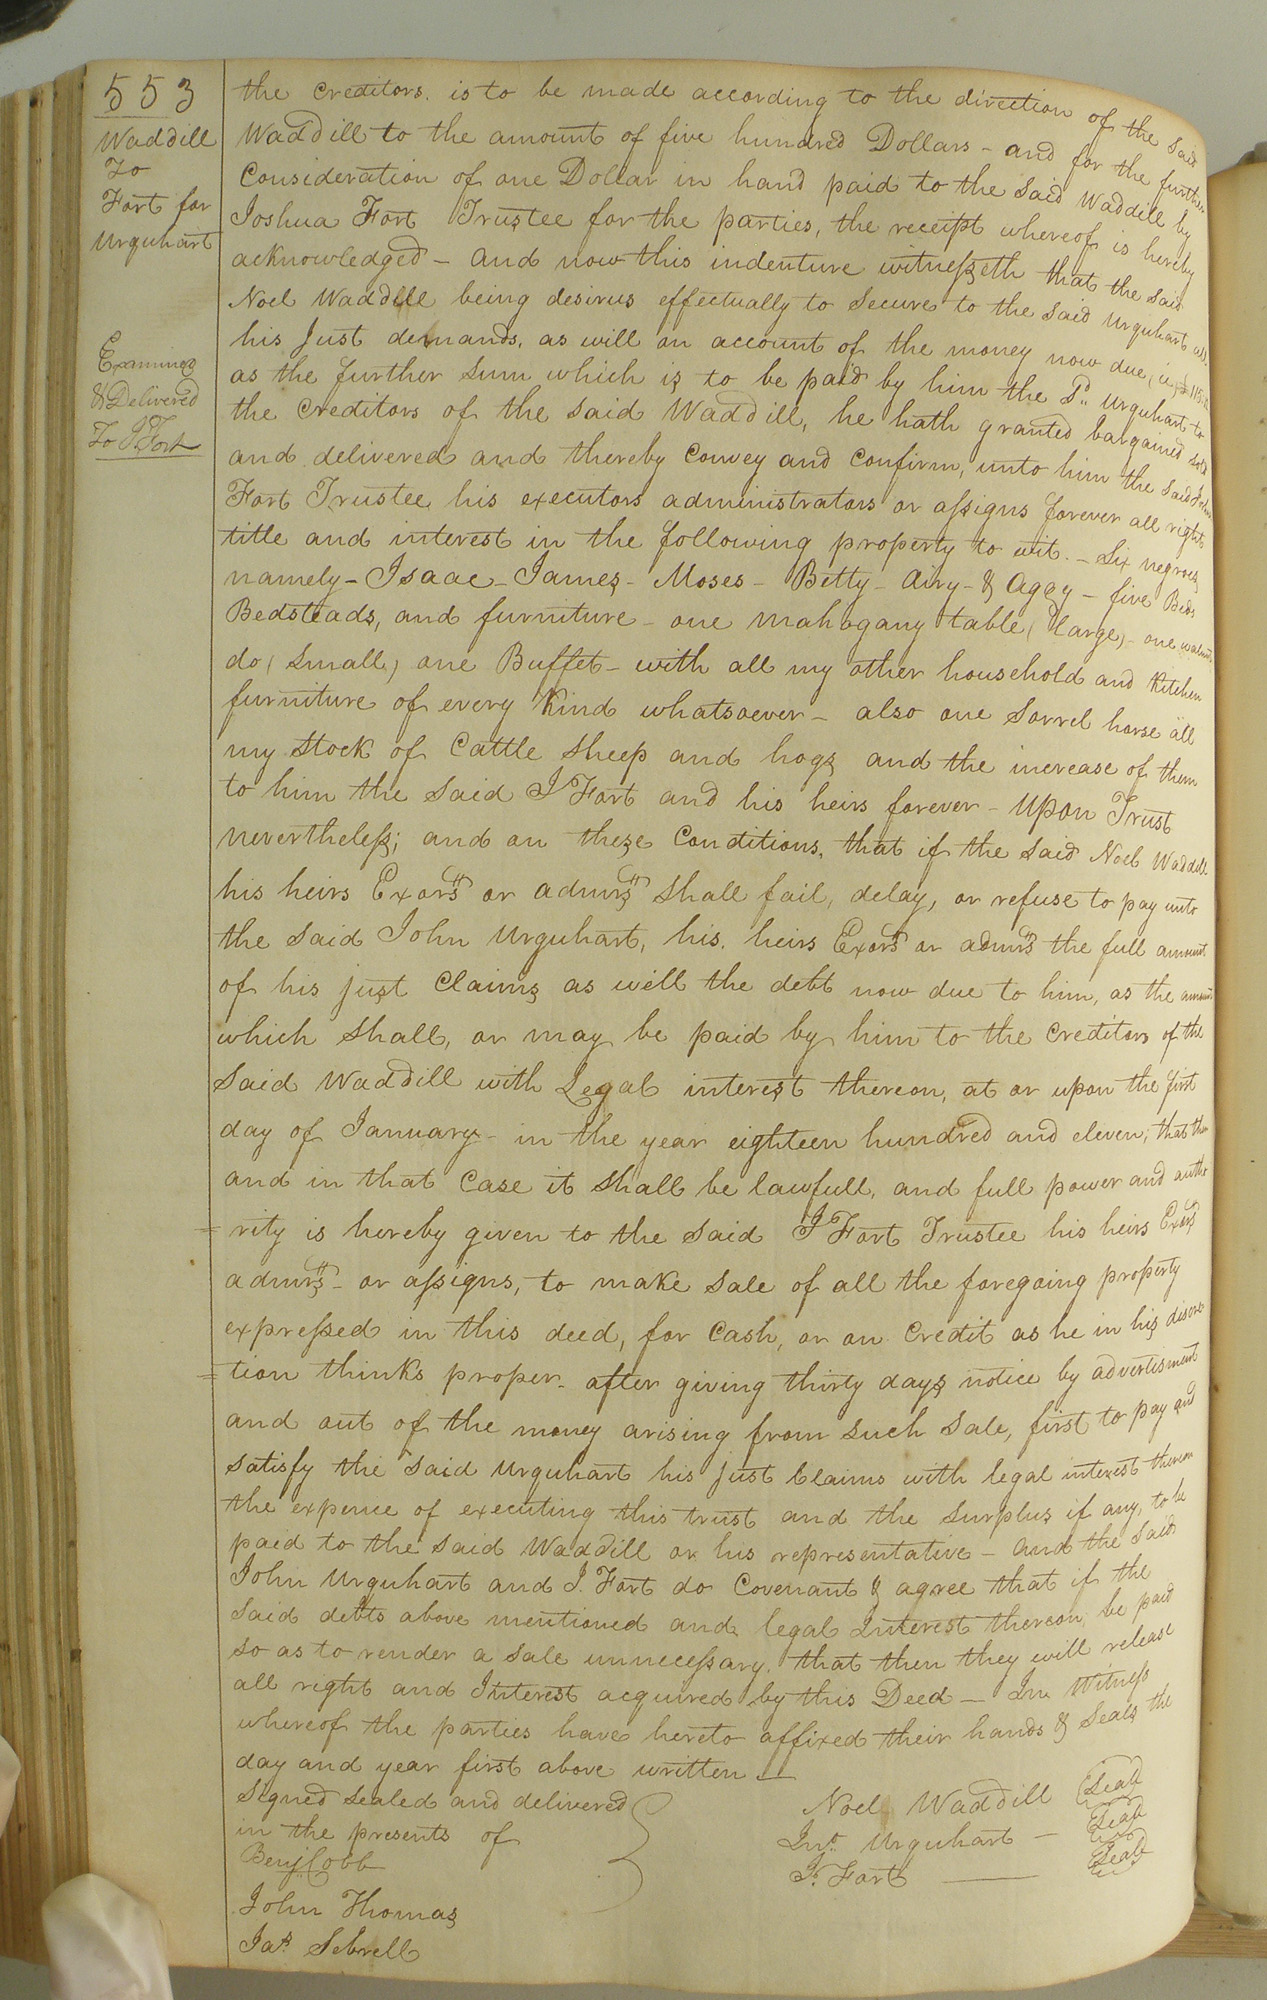 553
Waddill
To
Fort for
Urquhart
Examined
& Delivered
To J. Fort
the creditors. is to be made according to the direction of the said
Waddill to the amount of five hundred Dollars - and for the further
Consideration of one Dollar in hand paid to the said Waddill by
Joshua Fort Trustee for the parties, the receipt whereof is hereby
acknowledged - and now this indenture witnesseth that the said
Noel Waddill being desirus effectually to secure to the said Urquhart all
his just demands, as will on account of the money now due, ie,
as the further sum which is to be paid by him the sd. Urquhart to
the creditors of the said Waddill, he hath granted bargained sold
and delivered and thereby convey and confirm, unto him the said
Fort Trustee, his executors administrators or assigns forever all right
title and interest in the following property to wit. - Six negroes,
namely - Isaac - James - Moses - Betty - Airy - & Aggy - five Beds
Bedsteads, and furniture - one mahogany table (large,) - one walnut
do (small,) one Buffet - with all my other household and Kitchen
furniture of every Kind whatsoever - also one sorrel horse all
my stock of Cattle sheep and hogs and the increase of them
to him the said J Fort and his heirs forever - Upon Trust
nevertheless; and on these Conditions, that if the said Noel Waddill
his heirs Exors or admrs shall fail, delay, or refuse to pay unto
the said John Urquhart, his heirs Exors or admrs the full amount
of his just Claims as well the debt now due to him, as the amount
which shall, or may be paid by him to the Creditors of the
said Waddill with Legal interest thereon, at or upon the first
day of January - in the year eighteen hundred and eleven; that then
and in that Case it shall be lawfull, and full power and autho
=rity is hereby given to the said J Fort Trustee his heirs Exors
admrs - or assigns, to make sale of all the foregoing property
expressed in this deed, for Cash, or on Credit as he in his discre
=tion thinks proper - after giving thirty days notice by advertisment
and out of the money arising from such sale, first to pay and
satisfy the said Urquhart his just Claims with legal interest thereon
the expence of executing this trust and the surplus if any, to be
paid to the said Waddill or his representative - and the said
John Urquhart and J. Fort do Covenant & agree that if the
said debts above mentioned and legal Interest thereon, be paid
so as to render a sale unnecessary. that then they will release
all right and Interest acquired by this Deed - In Witness
whereof the parties have hereto affixed their hands & Seals the
day and year first above written -
Signed sealed and delivered
in the presents of
Benj Cobb
John Thomas
Jas. Sebrell
Noel Waddill Seal
Jno. Urquhart - Seal
J. Fort - Seal